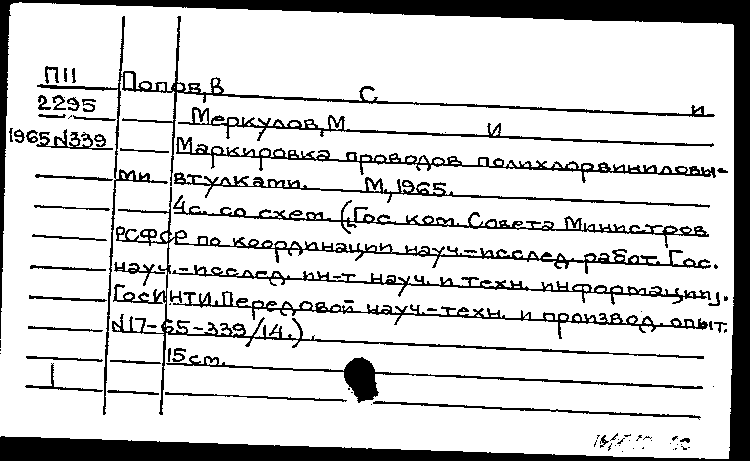 П11 Попов, В С и
2295 Меркулов, М И
1965 N339 Маркировка проводов полихлорвиниловы-
ми втулками. М., 1965.
4с. со схем. (Гос. ком. Совета Министров
РСФСР по координации науч.-исслед. работ. Гос.
науч.-исслед. ин-т науч. и техн. информации.
ГосИНТИ. Передовой науч.-техн. и производ. опыт.
N17-65-339/14.).
15 см.